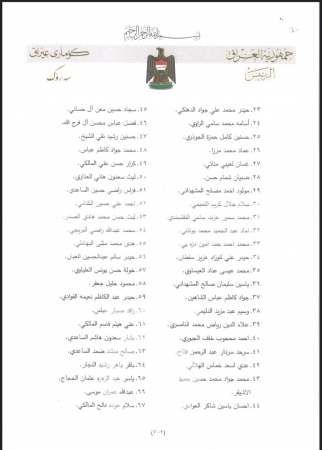 بسم الله الرحمن الرحيم
جمهورية العراق
الرئيس
كۆماری عێراق
سەرۆک
٢٣. حيدر محمد علي جواد الدهلكي
٢٤. أسامه محمد سامي الراوي
٢٥. حسنين كامل حمزة الجوذري
٢٦. عماد محمد مرزا
٢٧. غسان لعيبي مناتي
٢٨. ضبيان شعام حسن
٢٩. مولود احمد مصلح المشهداني
٣٠. سلام جلال كريم التميمي
٣١. محمد سمير عزت سامي النقشبندي
٣٢. اماد عبد الحميد محمد
٣٣. محمد احمد حمد امين
٣٤. حيدر علي كوراد عزيز سلطان
٣٥. محمد عيسى عداد العيساوي
٣٦. ياسين سليمان صالح المشهداني
٣٧. جواد كاظم عباس الشاهين
٣٨. وسيم عبد مزيد الدليمي
٣٩. علاء الدين رياض محمد الناصري
٤٠. احمد محجوب خلف الجبوري
٤١. سرحد سردار عبد الرحمن فتاح
٤٢. عدي اسعد خماس الهلالي
٤٣. محمد جواد محمد حسين حميد
الاشيقر
٤٤. احسان ياسين شاكر العوادي
٤٥. سجاد حسين معن آل حساني
٤٦. فضل عباس محسن آل فرج الله
٤٧. حسنين رشيد نقي الشيخ
٤٨. محمد جواد كاظم عباس
٤٩. كرار حسن علي المالكي
٥٠. ليث سعدون هاني
٥١. فراس راضي حسين الساعدي
٥٢. احمد علي حسين الكناني
٥٣. ليث حسن محمد هادي الصدر
٥٤. محمد عبدالله راضي
٥٥. هدى محمد مثنى البهادلي
٥٦. حيدر سالم عبدالحسين الغبان
٥٧. خولة حسن يونس العلياوي
٥٨. محمود خليل جعفر
٥٩. حيدر عبد الكاظم نعيمه الفوادي
٦٠. رائد صبار عباس
٦١. علي هيثم قاسم المالكي
٦٢. بشار سعدون هاشم الساعدي
٦٣. صالح منشد ضمد الساعدي
٦٤. باقر ياهر رشيد النجار
٦٥. ياسر عبد الزهره عثمان الحجاج
٦٦. عبدالله عمران موسى
٦٧. سلام عوده فالح المالكي
(٣-٢)